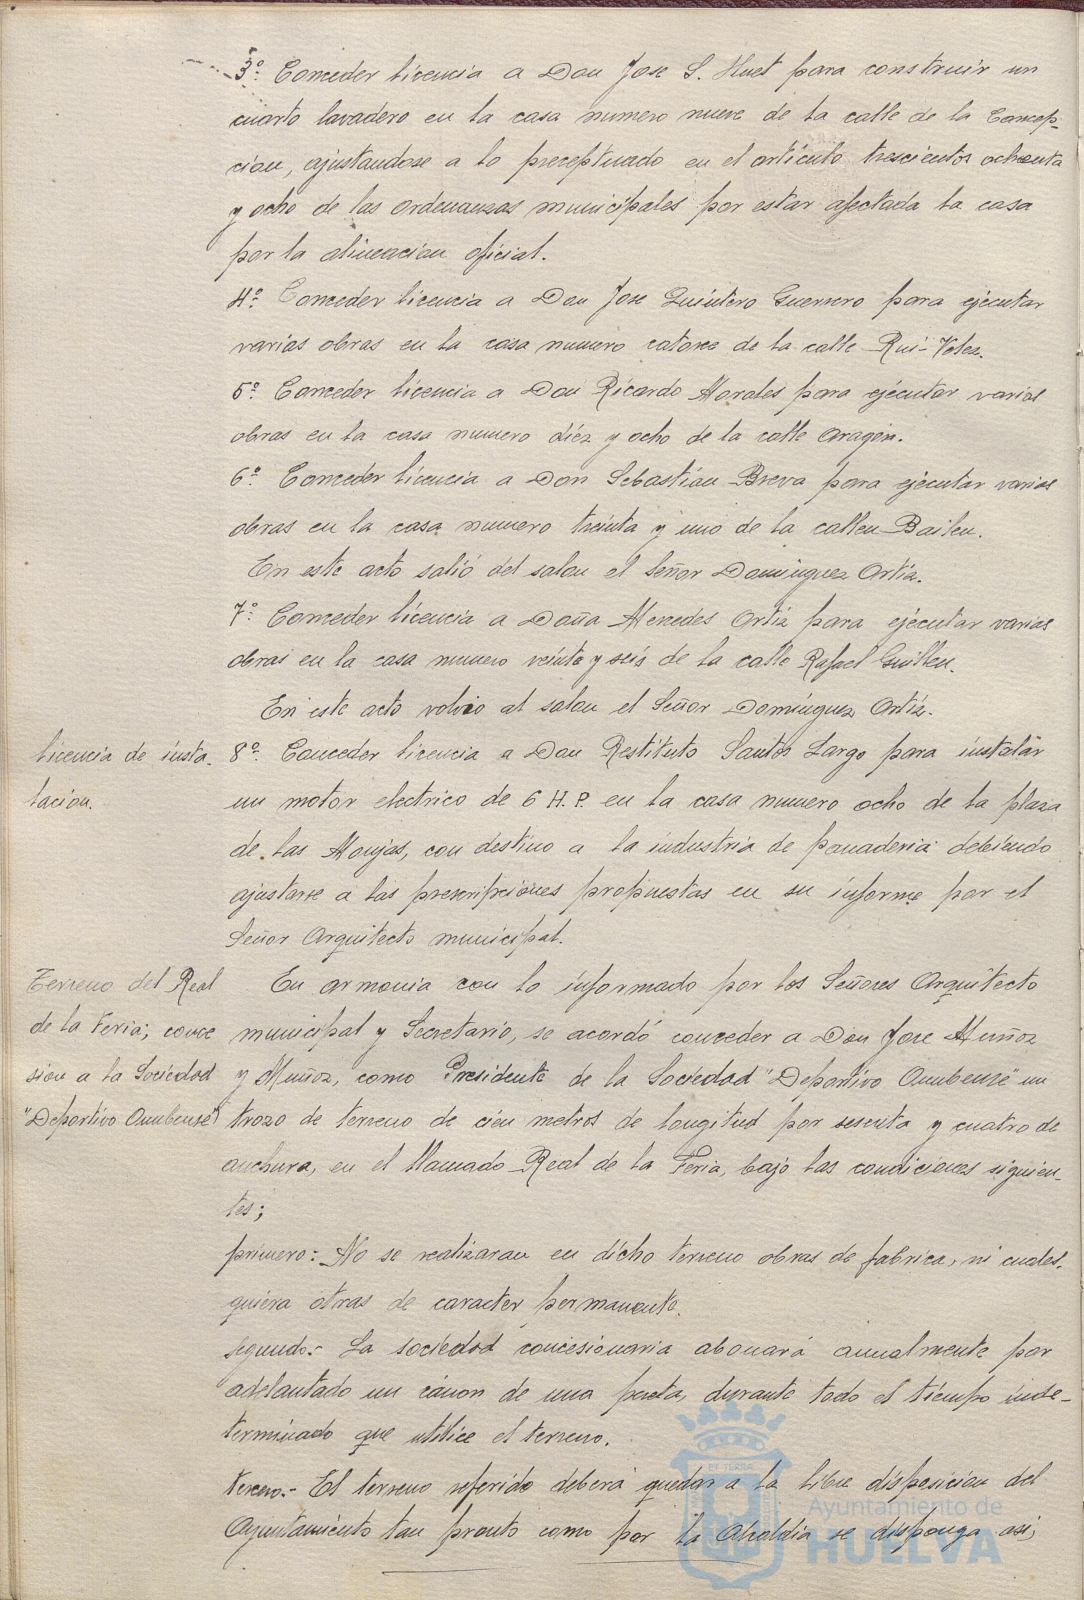 3º Conceder licencia a Don Jose S. Huet para construir un
cuarto lavadero en la casa numero nueve de la calle de la Concep-
cion, ajustandose a lo preceptuado en el articulo trescientos ochenta
y ocho de las ordenanzas municipales por estar afectada la casa
por la alineacion oficial.
4º Conceder licencia a Don Jose Quintero Guerrero para ejecutar
varias obras en la casa numero catorce de la calle Rui-Velez.
5º Conceder licencia a Don Ricardo Morales para ejecutar varias
obras en la casa numero diez y ocho de la calle Aragón.
6º Conceder licencia a Don Sebastian Breva para ejecutar varias
obras en la casa numero treinta y uno de la calleu Bailen.
En este acto salió del salon el Señor Dominguez Ortiz.
7º Conceder licencia a Doña Mercedes Ortiz para ejecutar varias
obras en la casa numero veinte y seis de la calle Rafael Guillen.
En este acto volvio al salon el Señor Dominguez Ortiz.
Licencia de insta-
lacion.
8º Conceder licencia a Don Restituto Santos Largo para instalar
un motor electrico de 6 H.P. en la casa numero ocho de la plaza
de las Monjas, con destino a la industria de panaderia debiendo
ajustarse a las prescripciones propuestas en su informe por el
Señor Arquitecto municipal.
Terreno del Real
de la Feria; conce
sion a la Sociedad
"Deportivo Onubense"
En armonia con lo informado por los Señores Arquitecto
municipal y Secretario, se acordó conceder a Don Jose Muñoz
y Muñoz, como Presidente de la Sociedad "Deportivo Onubense" un
trozo de terreno de cien metros de longitud por sesenta y cuatro de
anchura, en el llamado Real de la Feria, bajo las condiciones siguien-
tes;
primero:- No se realizaran en dicho terreno obras de fabrica, ni cuales-
quiera otras de caracter permanente.
segundo.- La sociedad concesionaria abonará anualmente por
adelantado un cánon de una peseta, durante todo el tiempo inde-
terminado que utilice el terreno.
tercero.- El terreno referido deberá quedar a la libre disposicion del
Ayuntamiento tan pronto como por la Alcaldia se disponga asi;
ET TERRA
Ayuntamiento de
HUELVA